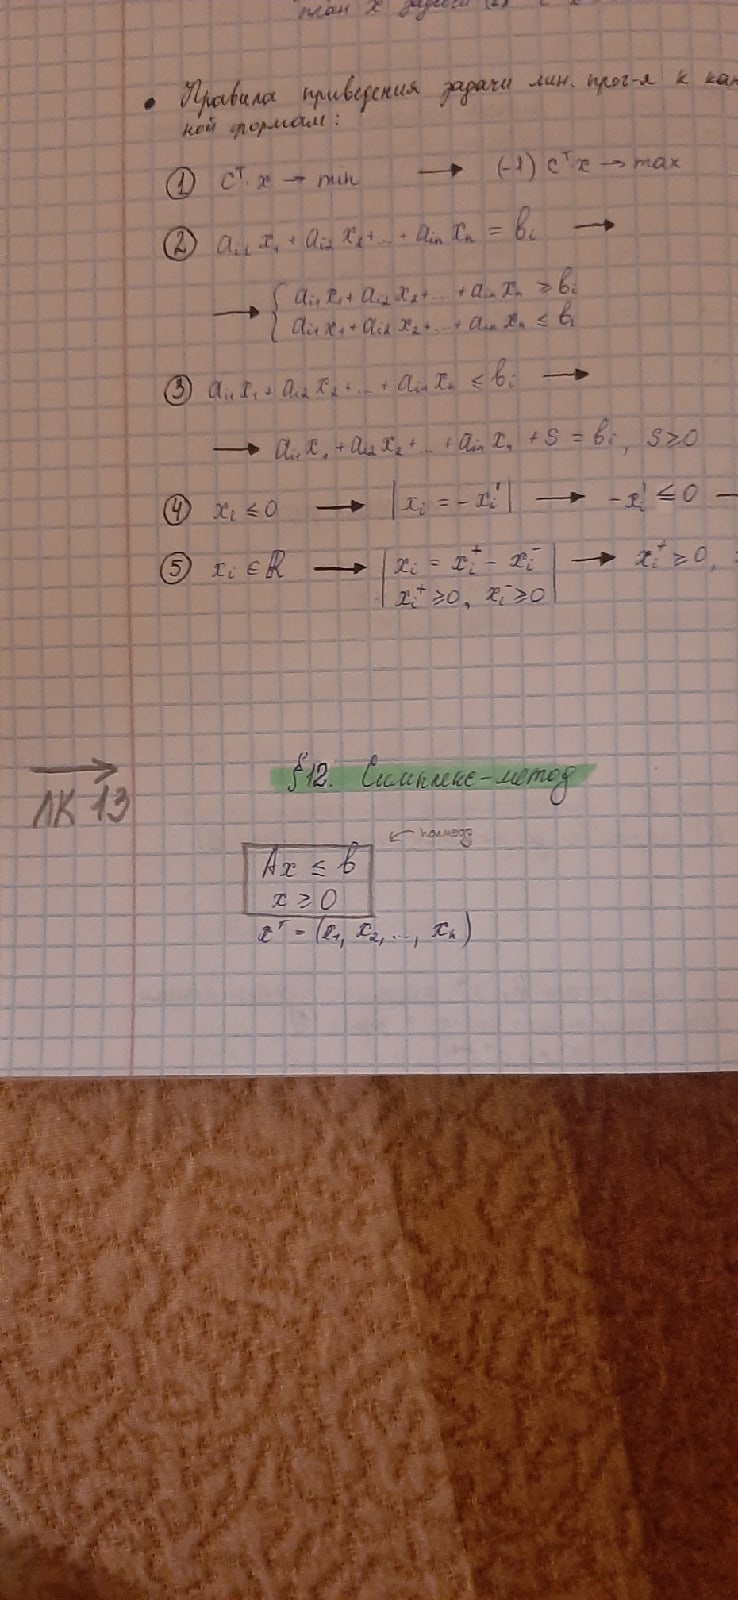 план x задачи (2)
• Правила приведения задачи лин. прог-я к кан
ной формам:
① cᵀ·x → min → (-1) cᵀx → max
② aᵢ₁x₁ + aᵢ₂x₂ + ... + aᵢₙxₙ = bᵢ →
→ { aᵢ₁x₁ + aᵢ₂x₂ + ... + aᵢₙxₙ ≥ bᵢ
aᵢ₁x₁ + aᵢ₂x₂ + ... + aᵢₙxₙ ≤ bᵢ
③ aᵢ₁x₁ + aᵢ₂x₂ + ... + aᵢₙxₙ ≤ bᵢ →
→ aᵢ₁x₁ + aᵢ₂x₂ + ... + aᵢₙxₙ + s = bᵢ, s ≥ 0
④ xᵢ ≤ 0 → | xᵢ = -xᵢ' | → -xᵢ' ≤ 0 —
⑤ xᵢ ∈ R → | xᵢ = xᵢ⁺ - xᵢ⁻ | → xᵢ⁺ ≥ 0,
xᵢ⁺ ≥ 0, xᵢ⁻ ≥ 0
§12. Симплекс-метод
→
ЛК 13
Ax ≤ b
x ≥ 0
xᵀ = (x₁, x₂, ..., xₙ)